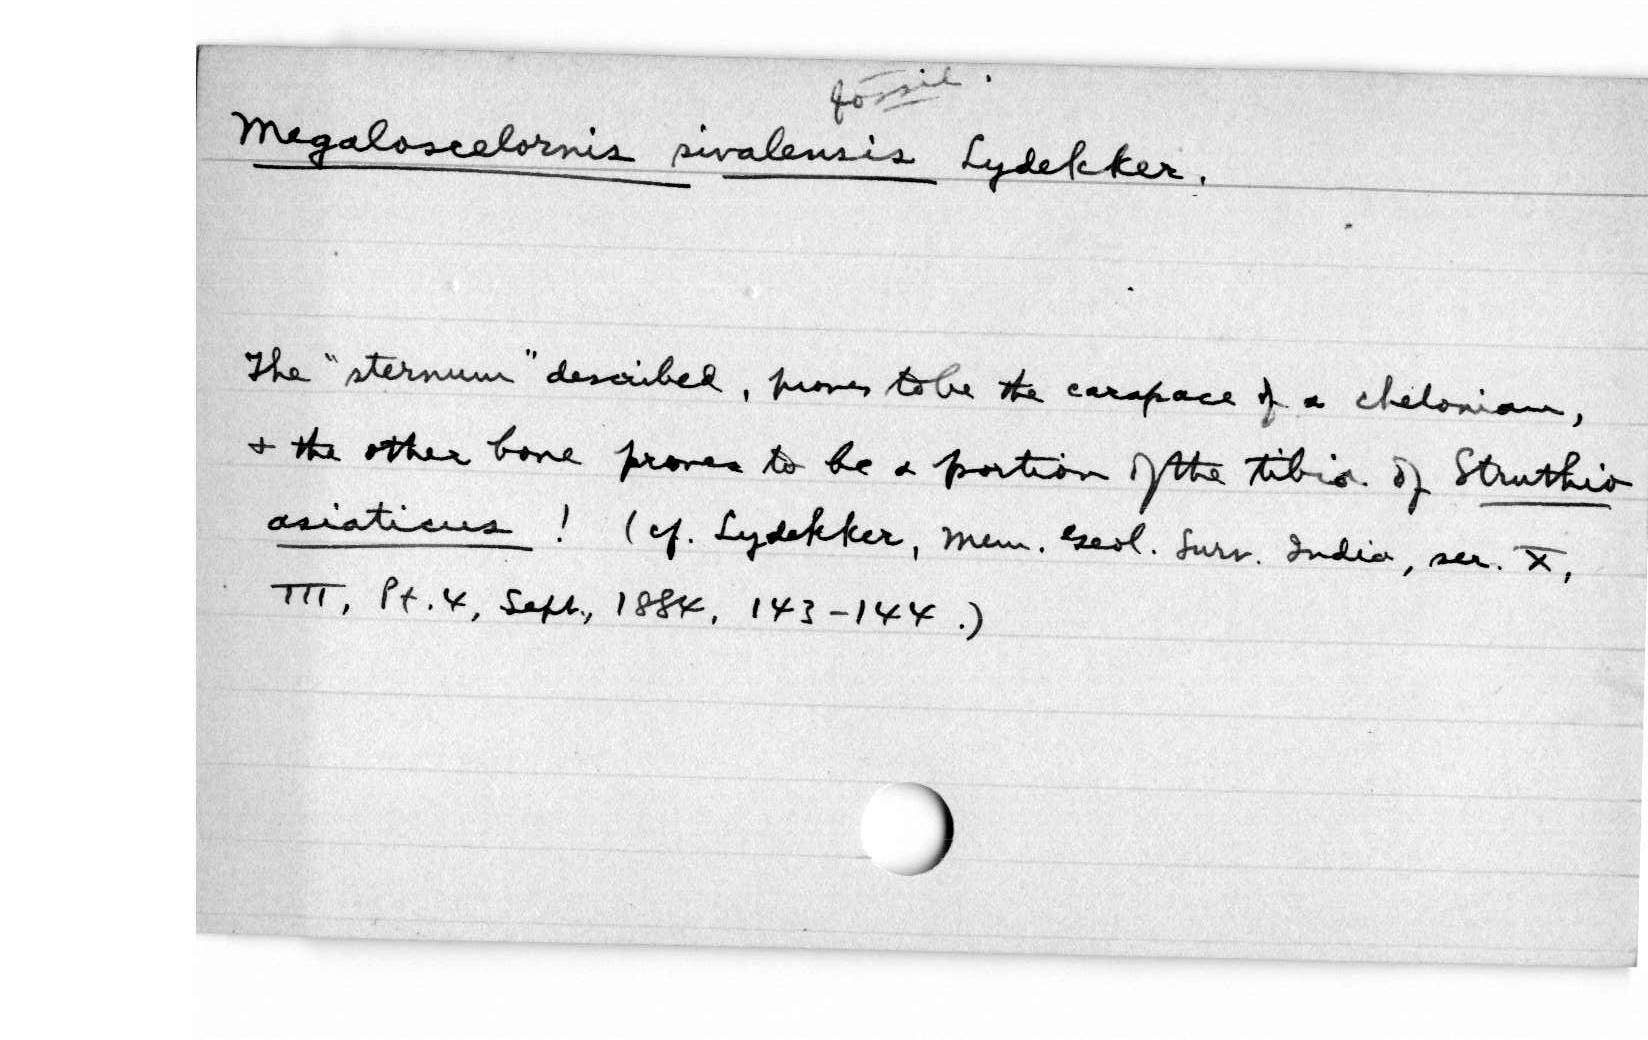 fossil.
Megaloscelornis sivalensis Lydekker.
The "sternum" described, proves to be the carapace of a chelonian,
+ the other bone proves to be a portion of the tibia of Struthio
asiaticus! (cf. Lydekker, Mem. Geol. Surv. India, ser. X,
III, Pt. 4, Sept., 1884, 143-144.)